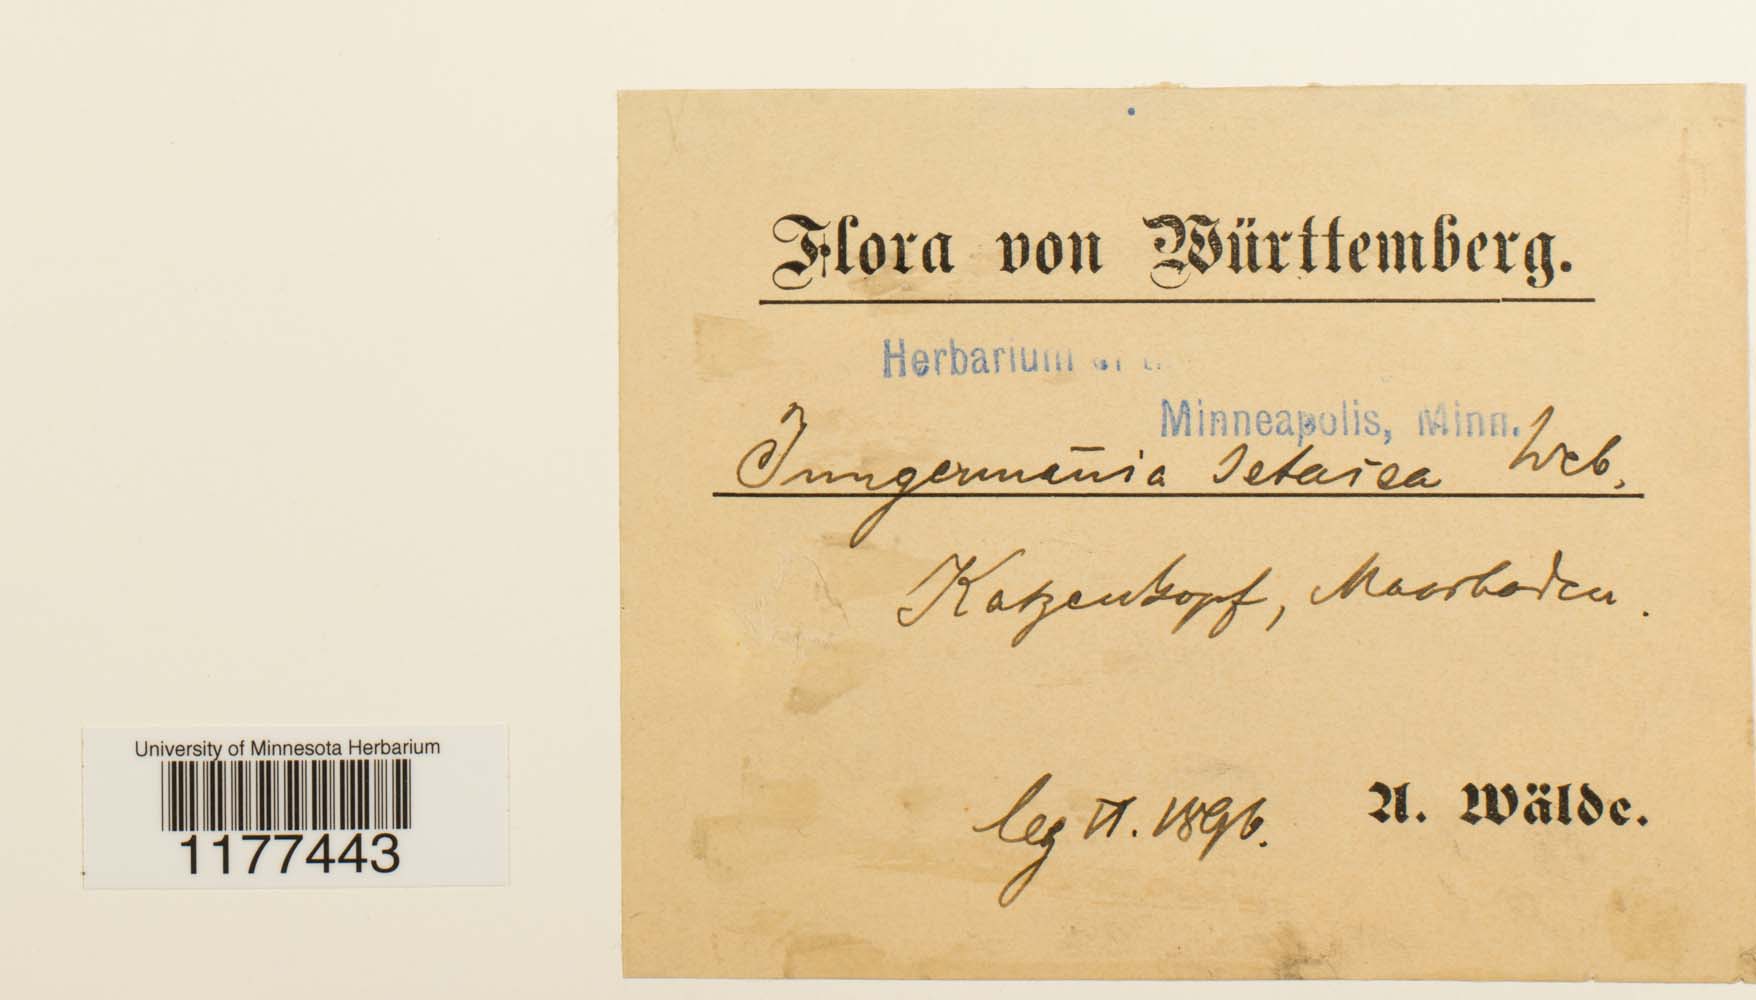 Flora von Württemberg.
Herbarium of
Minneapolis, Minn.
Jungermañia setacea Web.
Katzenkopf, Moorboden.
leg II. 1896. A. Wälde.
University of Minnesota Herbarium
1177443